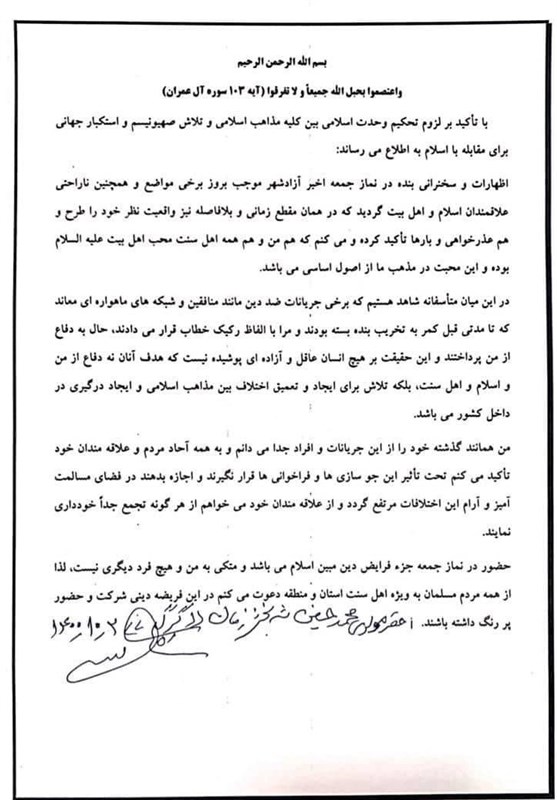 بسم الله الرحمن الرحیم
واعتصموا بحبل الله جمیعاً و لا تفرقوا (آیه ۱۰۳ سوره آل عمران)
با تأکید بر لزوم تحکیم وحدت اسلامی بین کلیه مذاهب اسلامی و تلاش صهیونیسم و استکبار جهانی
برای مقابله با اسلام به اطلاع می رساند:
اظهارات و سخنرانی بنده در نماز جمعه اخیر آزادشهر موجب بروز برخی مواضع و همچنین ناراحتی
علاقمندان اسلام و اهل بیت گردید که در همان مقطع زمانی و بلافاصله نیز واقعیت نظر خود را طرح و
هم عذرخواهی و بارها تأکید کرده و می کنم که هم من و هم همه اهل سنت محب اهل بیت علیه السلام
بوده و این محبت در مذهب ما از اصول اساسی می باشد.
در این میان متأسفانه شاهد هستیم که برخی جریانات ضد دین مانند منافقین و شبکه های ماهواره ای معاند
که تا مدتی قبل کمر به تخریب بنده بسته بودند و مرا با الفاظ رکیک خطاب قرار می دادند، حال به دفاع
از من پرداختند و این حقیقت بر هیچ انسان عاقل و آزاده ای پوشیده نیست که هدف آنان نه دفاع از من
و اسلام و اهل سنت، بلکه تلاش برای ایجاد و تعمیق اختلاف بین مذاهب اسلامی و ایجاد درگیری در
داخل کشور می باشد.
من همانند گذشته خود را از این جریانات و افراد جدا می دانم و به همه آحاد مردم و علاقه مندان خود
تأکید می کنم تحت تأثیر این جو سازی ها و فراخوانی ها قرار نگیرند و اجازه بدهند در فضای مسالمت
آمیز و آرام این اختلافات مرتفع گردد و از علاقه مندان خود می خواهم از هر گونه تجمع جداً خودداری
نمایند.
حضور در نماز جمعه جزء فرایض دین مبین اسلام می باشد و متکی به من و هیچ فرد دیگری نیست، لذا
از همه مردم مسلمان به ویژه اهل سنت استان و منطقه دعوت می کنم در این فریضه دینی شرکت و حضور
پر رنگ داشته باشند. احقر مولوی محمد حسین ۱۴۰۰٫۱۰٫۲